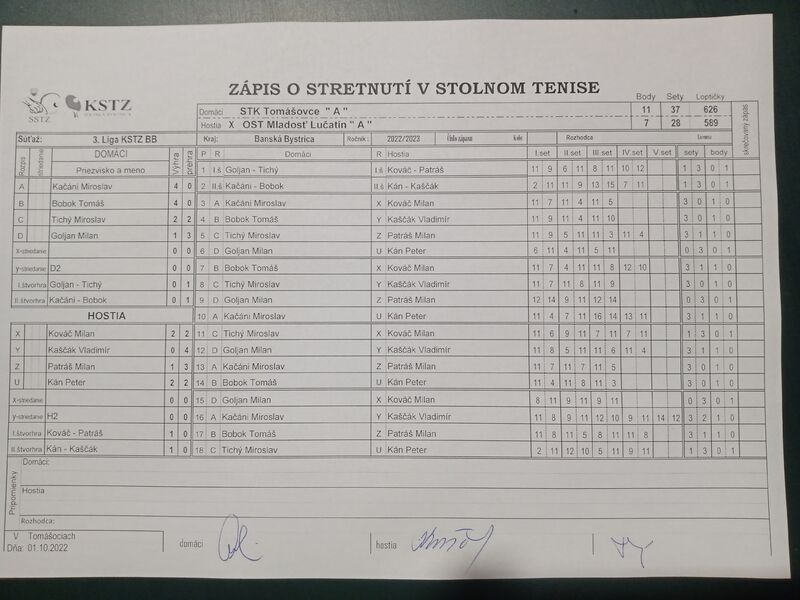 ZÁPIS O STRETNUTÍ V STOLNOM TENISE
SSTZ KSTZ
Body Sety Loptičky
Domáci STK Tomášovce " A " 11 37 626
Hostia X OST Mladosť Lučatín " A " 7 28 589
skrečovaný zápas
Súťaž: 3. Liga KSTZ BB Kraj: Banská Bystrica Ročník : 2022/2023 Číslo zápasu kolo Rozhodca
Rozpis striedanie DOMÁCI Priezvisko a meno Výhra prehra
P R Domáci R Hostia I.set II.set III.set IV.set V.set sety body
A Kačáni Miroslav 4 0
B Bobok Tomáš 4 0
C Tichý Miroslav 2 2
D Goljan Milan 1 3
X-striedanie 0 0
y-striedanie D2 0 0
I.štvorhra Goljan - Tichý 0 1
II.štvorhra Kačáni - Bobok 0 1
HOSTIA
X Kováč Milan 2 2
Y Kaščák Vladimír 0 4
Z Patráš Milan 1 3
U Kán Peter 2 2
X-striedanie 0 0
y-striedanie H2 0 0
I.štvorhra Kováč - Patráš 1 0
II.štvorhra Kán - Kaščák 1 0
1 I.š Goljan - Tichý I.š Kováč - Patráš 11 9 6 11 8 11 10 12 1 3 0 1
2 II.š Kačáni - Bobok II.š Kán - Kaščák 2 11 11 9 13 15 7 11 1 3 0 1
3 A Kačáni Miroslav X Kováč Milan 11 7 11 4 11 5 3 0 1 0
4 B Bobok Tomáš Y Kaščák Vladimír 11 9 11 4 11 10 3 0 1 0
5 C Tichý Miroslav Z Patráš Milan 11 9 5 11 11 3 11 4 3 1 1 0
6 D Goljan Milan U Kán Peter 6 11 4 11 5 11 0 3 0 1
7 B Bobok Tomáš X Kováč Milan 11 7 4 11 11 8 12 10 3 1 1 0
8 C Tichý Miroslav Y Kaščák Vladimír 11 7 11 8 11 9 3 0 1 0
9 D Goljan Milan Z Patráš Milan 12 14 9 11 12 14 0 3 0 1
10 A Kačáni Miroslav U Kán Peter 11 4 7 11 16 14 13 11 3 1 1 0
11 C Tichý Miroslav X Kováč Milan 11 6 9 11 7 11 7 11 1 3 0 1
12 D Goljan Milan Y Kaščák Vladimír 11 8 5 11 11 6 11 4 3 1 1 0
13 A Kačáni Miroslav Z Patráš Milan 11 7 11 7 11 5 3 0 1 0
14 B Bobok Tomáš U Kán Peter 11 4 11 8 11 3 3 0 1 0
15 D Goljan Milan X Kováč Milan 8 11 9 11 9 11 0 3 0 1
16 A Kačáni Miroslav Y Kaščák Vladimír 11 8 9 11 12 10 9 11 14 12 3 2 1 0
17 B Bobok Tomáš Z Patráš Milan 11 8 11 5 8 11 11 8 3 1 1 0
18 C Tichý Miroslav U Kán Peter 2 11 12 10 5 11 9 11 1 3 0 1
Pripomienky
Domáci:
Hostia
Rozhodca:
V Tomášociach
Dňa: 01.10.2022
domáci hostia